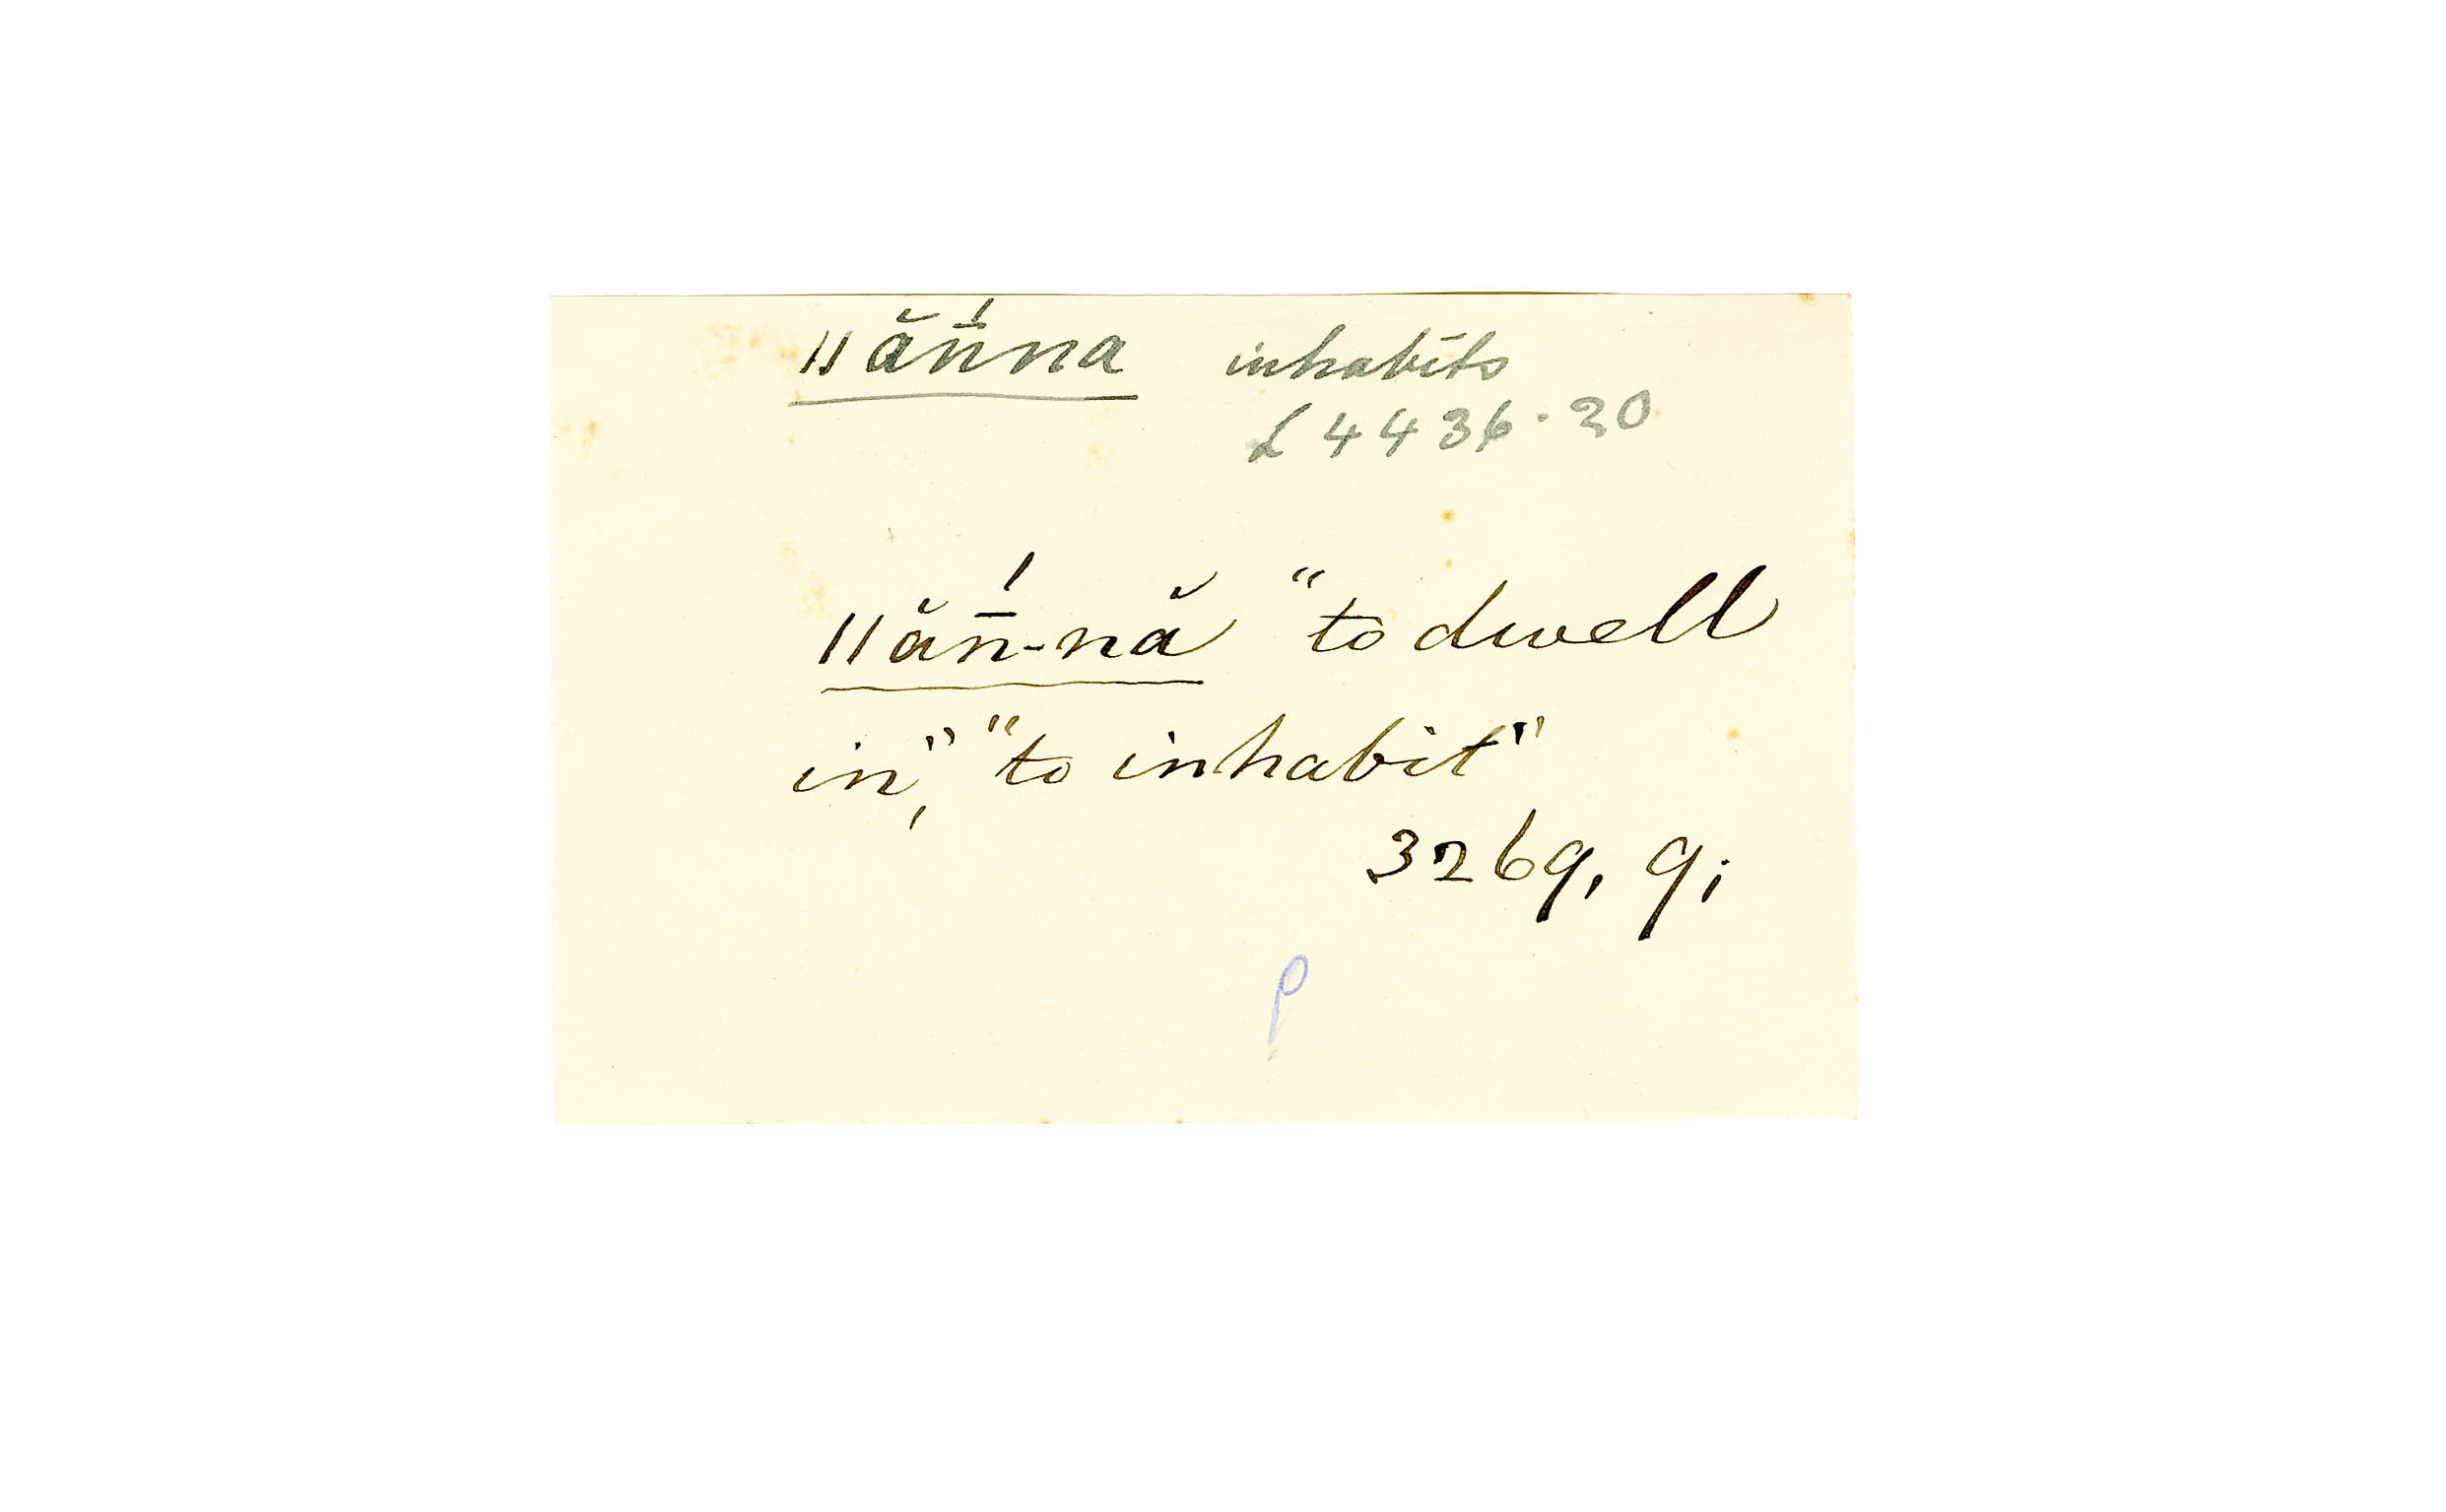 ǁă̄ńna inhabits
L 4436·20
ǁăn̄́-nă "to dwell
in", "to inhabit"
3269, 9;
P